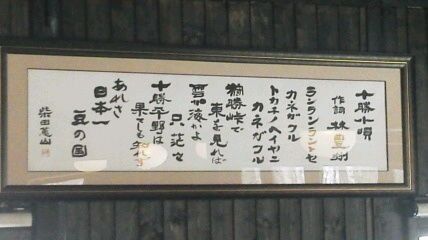 十勝小唄
作詞 林 豊洲
ランランラントセ
カネガフル
トカチノヘイヤニ
カネガフル
狩勝峠で
東を見れば
雲か海かよ
只茫々
十勝平野は
果てしも知れず
あれさ
日本一
豆の国